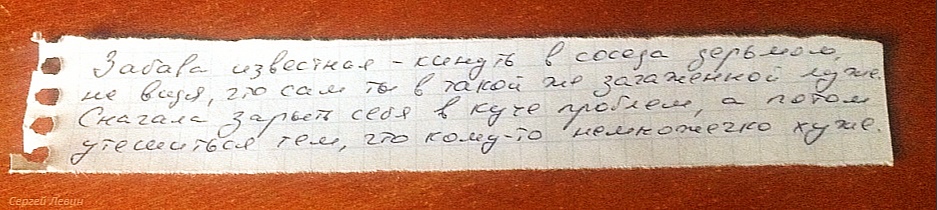 Забава известная – кинуть в соседа дерьмом,
не видя, что сам ты в такой же загаженной луже.
Сначала зарыть себя в куче проблем, а потом
утешиться тем, что кому-то немножечко хуже.
Сергей Левин